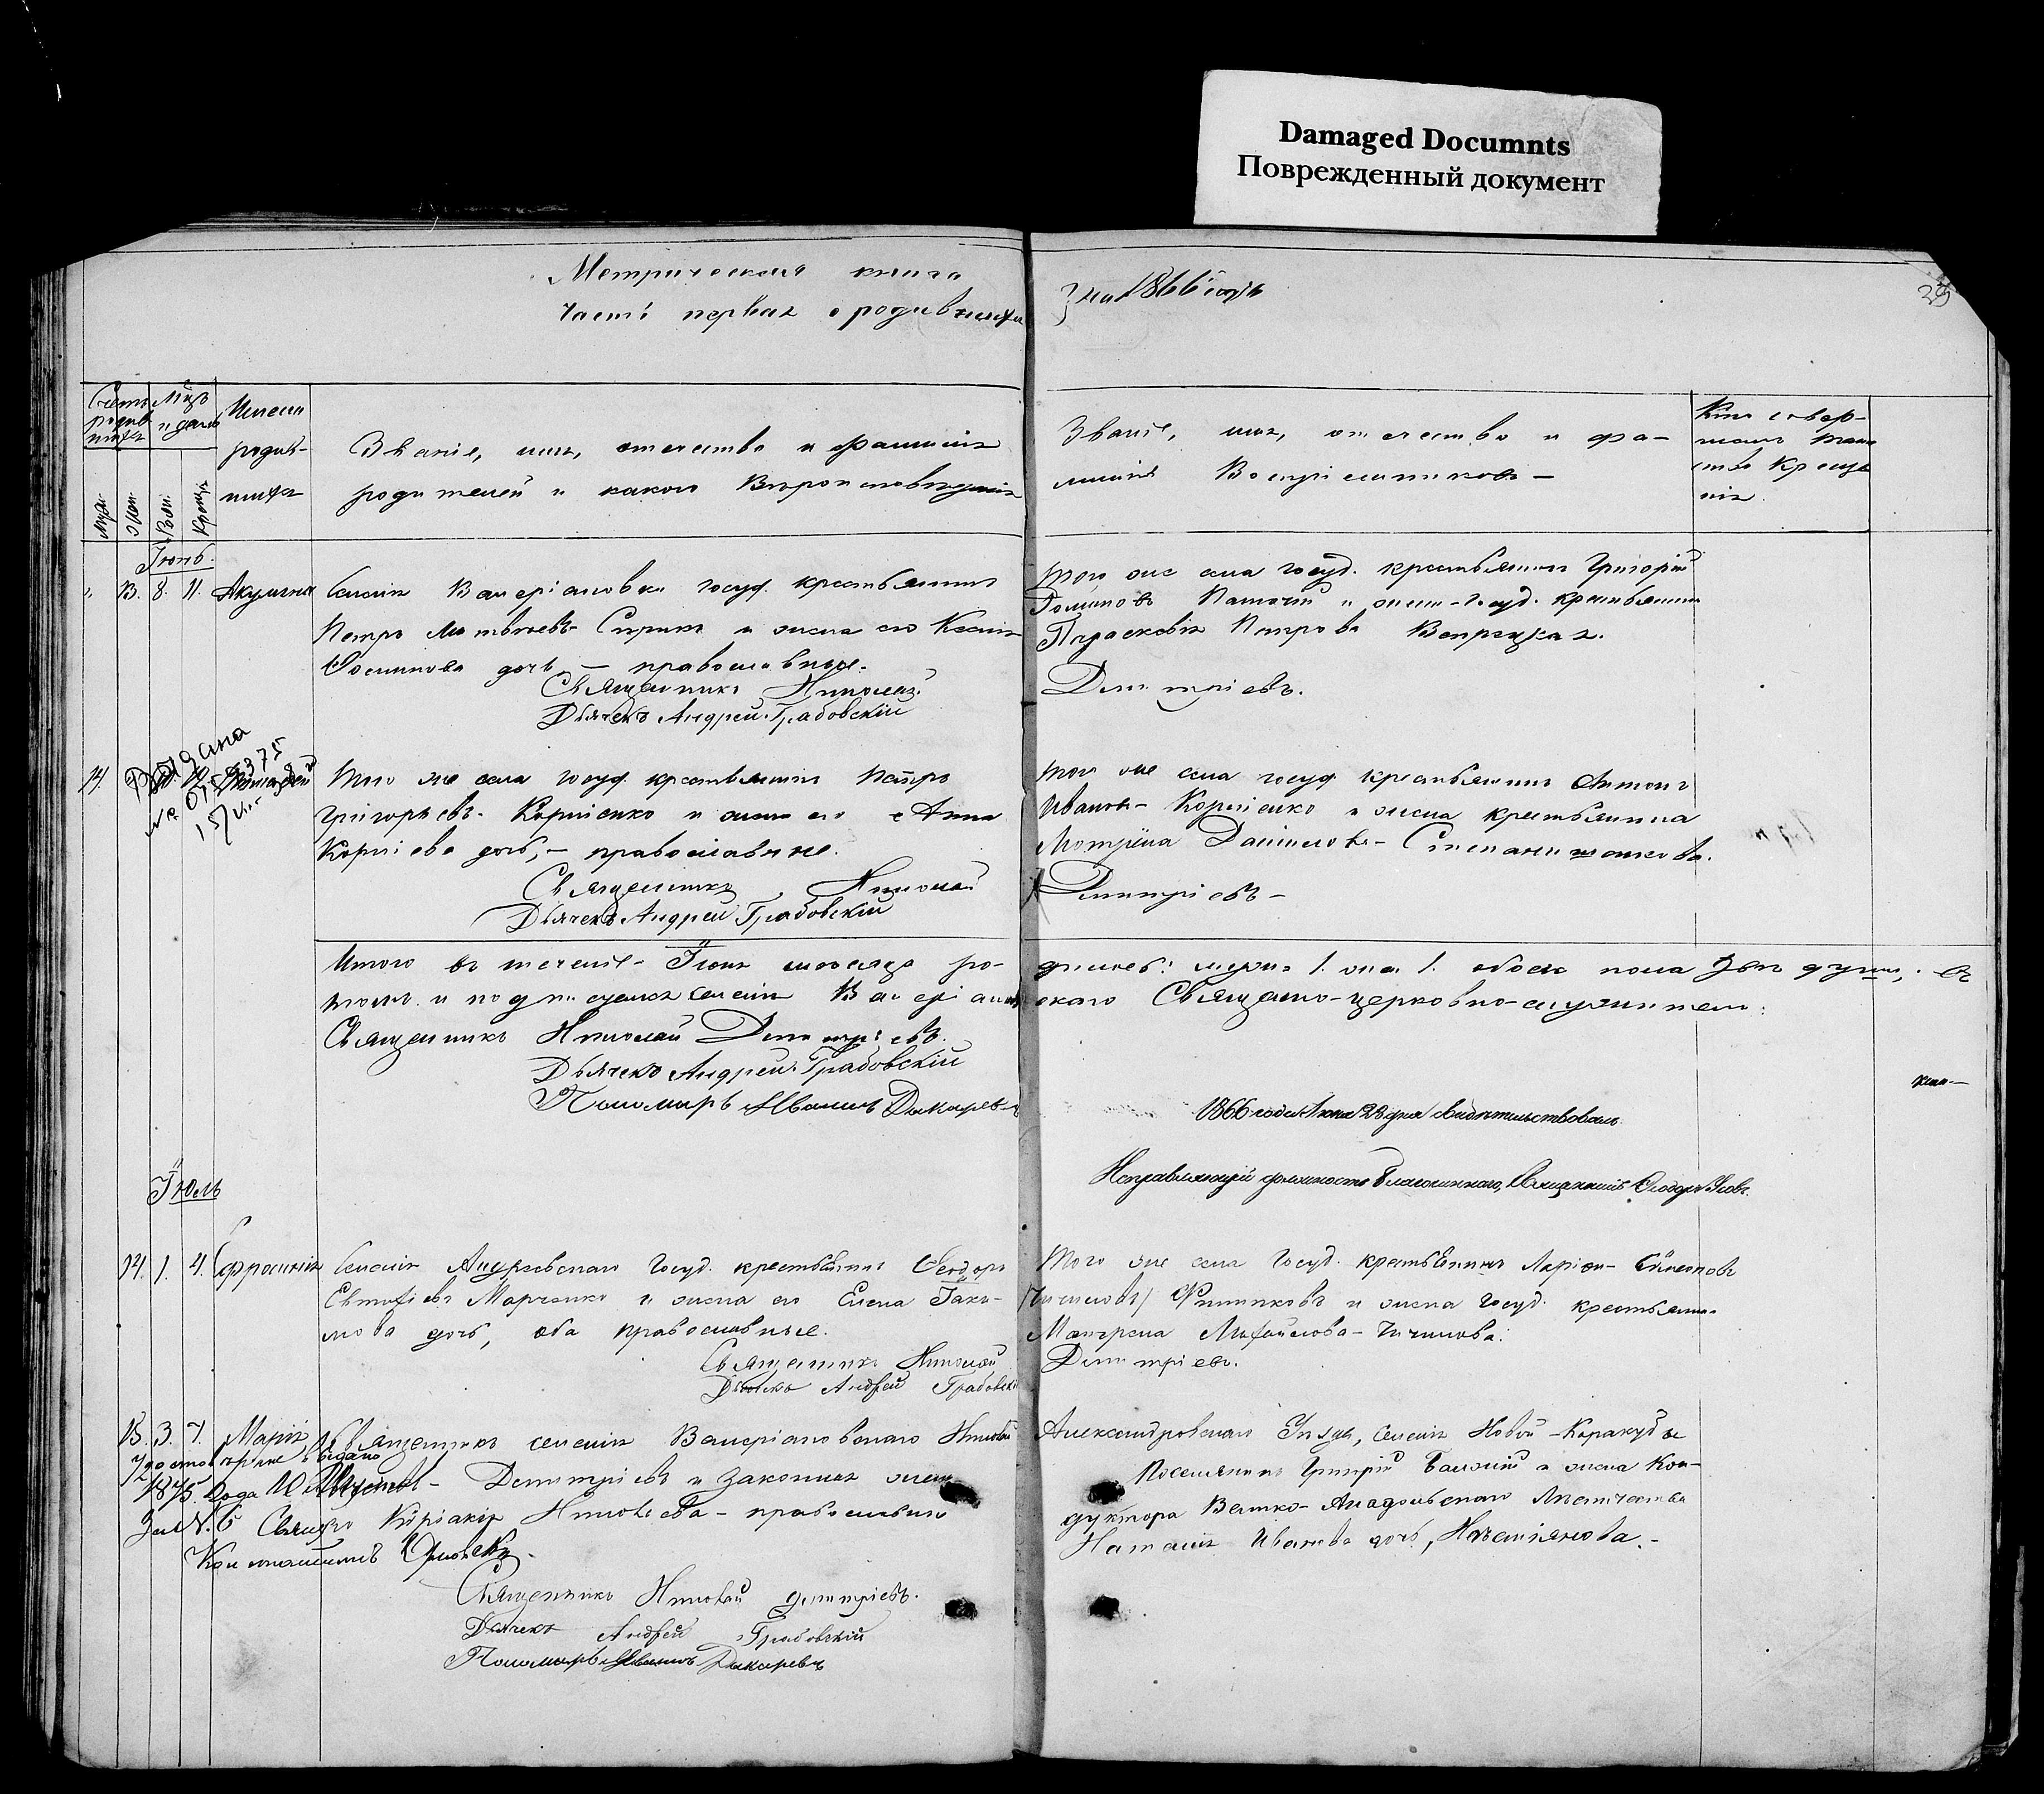 Damaged Documnts
Поврежденный документ
Метрическая книга
часть первая о родившихся
на 1866 годъ
39
Счетъ родив-шихся
Мѣсъ и день
Имена родив-шихся
Званіе, имя, отечество и фамилія
родителей и какого Вѣроисповѣданія
Званіе, имя, отечество и фа-
милія Воспріемниковъ —
Кто совер-
шалъ таин
ство Креще
нія.
Муж.
Жен.
Рожд.
Крещ.
Іюнь.
13. 8. 11. Акулина
Селенія Валеріановки госуд. крестьянинъ
Петръ Матвѣевъ Сирикъ и жена его Ксенія
дочь — православные.
Священникъ Николай
Дьячекъ Андрей Грабовскій
того же села госуд. крестьянинъ Григорій
и жена госуд. крестьянина
Параскевія Петрова
Димитріевъ.
14.
Выдана
того же села госуд. крестьянинъ Петръ
Григорьевъ Корніенко и жена его Анна
Корніева дочь, — православные.
Священникъ Николай
Дьячекъ Андрей Грабовскій
того же села госуд. крестьянинъ Антонъ
Ивановъ Корніенко и жена крестьянина
Мотрёна Даниилова —
Димитріевъ —
Итого въ теченіе Іюня мѣсяца ро-
дилось: муж. 1. жен. 1. обоего пола двѣ души, въ
томъ и подписуемся селенія Валеріанов
скаго Священно-церковно-служители:
Священникъ Николай Димитріевъ.
Дьячекъ Андрей Грабовскій
Пономарь Иванъ Дикаревъ
1866 года Іюня 28 дня свидѣтельствовалъ
Исправляющій должность Благочиннаго, Священникъ Ѳеодоръ
Іюль
14. 1. 4. Ефросинія
Селенія Андреевскаго госуд. крестьянинъ Ѳеодоръ
Евтихіевъ Марченко и жена его Елена Іаки-
мова дочь, оба православные.
Священникъ Николай
Дьячекъ Андрей Грабовскій
Того же села госуд. крестьянинъ Ларіонъ Симеоновъ
и жена госуд. крестьянина
Михайлова —
Димитріевъ.
15. 3. 7. Марія
Священникъ селенія Валеріановскаго Николай
Димитріевъ и законная жена
Киріакія Николаева — православные
1875 года
за № 6
Константинъ
Священникъ Николай Димитріевъ.
Дьячекъ Андрей Грабовскій
Пономарь Иванъ Дикаревъ
Александровскаго Уѣзда, селенія Новой-Каракубы
Поселянинъ Григорій и жена Кон-
дуктора Велико-Анадольскаго Лѣсничества
Наталія Иванова дочь,